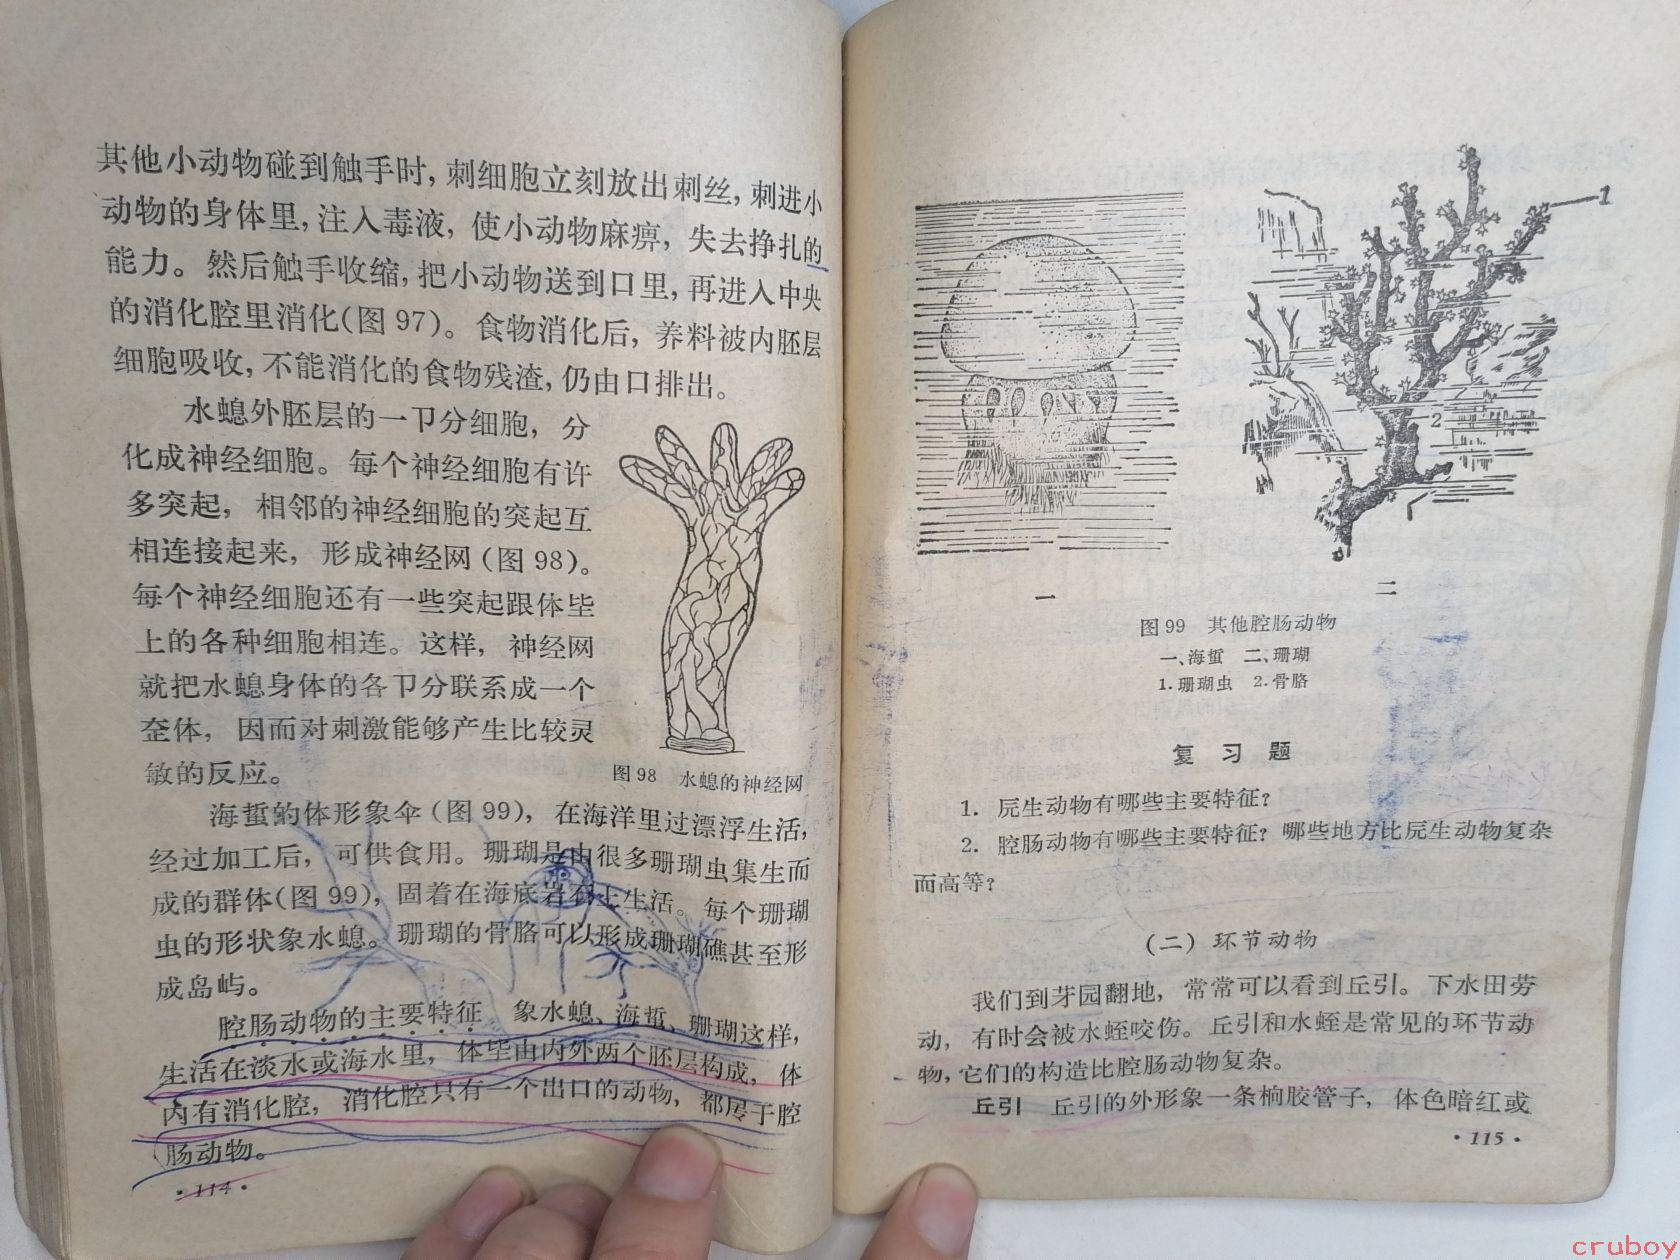 其他小动物碰到触手时，刺细胞立刻放出刺丝，刺进小
动物的身体里，注入毒液，使小动物麻痹，失去挣扎的
能力。然后触手收缩，把小动物送到口里，再进入中央
的消化腔里消化(图 97)。食物消化后，养料被内胚层
细胞吸收，不能消化的食物残渣，仍由口排出。
水螅外胚层的一卩分细胞，分
化成神经细胞。每个神经细胞有许
多突起，相邻的神经细胞的突起互
相连接起来，形成神经网 (图 98)。
每个神经细胞还有一些突起跟体坒
上的各种细胞相连。这样，神经网
就把水螅身体的各卩分联系成一个
体，因而对刺激能够产生比较灵
敏的反应。
图 98 水螅的神经网
海蜇的体形象伞 (图 99)，在海洋里过漂浮生活，
经过加工后，可供食用。珊瑚是由很多珊瑚虫集生而
成的群体(图 99)，固着在海底岩石上生活。每个珊瑚
虫的形状象水螅。珊瑚的骨胳可以形成珊瑚礁甚至形
成岛屿。
腔肠动物的主要特征 象水螅、海蜇、珊瑚这样，
生活在淡水或海水里，体坒由内外两个胚层构成，体
内有消化腔，消化腔只有一个出口的动物，都于腔
肠动物。
·114·
1
2
一 二
图 99 其他腔肠动物
一、海蜇 二、珊瑚
1.珊瑚虫 2.骨胳
复 习 题
1. 生动物有哪些主要特征？
2. 腔肠动物有哪些主要特征？哪些地方比生动物复杂
而高等？
(二) 环节动物
我们到园翻地，常常可以看到丘引。下水田劳
动，有时会被水蛭咬伤。丘引和水蛭是常见的环节动
物，它们的构造比腔肠动物复杂。
丘引 丘引的外形象一条胶管子，体色暗红或
·115·
cruboy